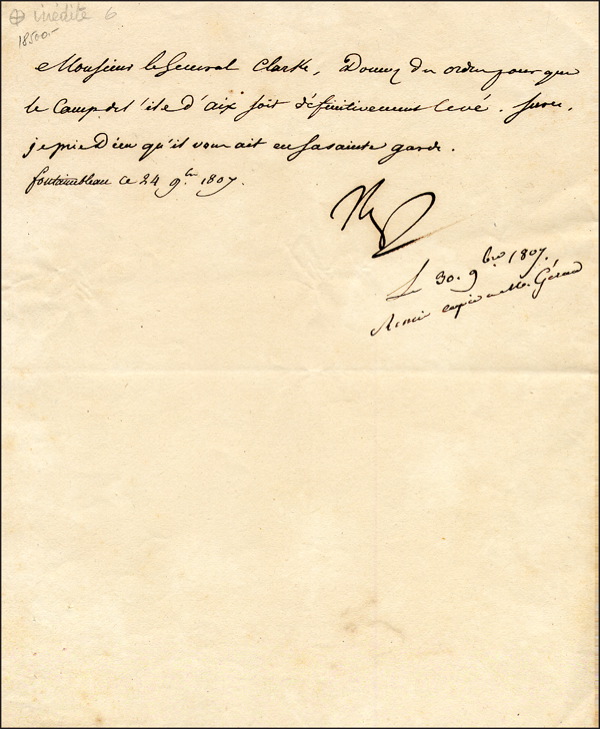 inédite 6
18500.-
Monsieur le General Clarke, Donnez des ordres pour que
le Camp de l'ile d'aix soit définitivement levé. Sur ce,
je prie Dieu qu'il vous ait en sa sainte garde.
fontainebleau ce 24 9.bre 1807.
Np
Le 30. 9bre 1807.
Remis copie a Mr. Gérard